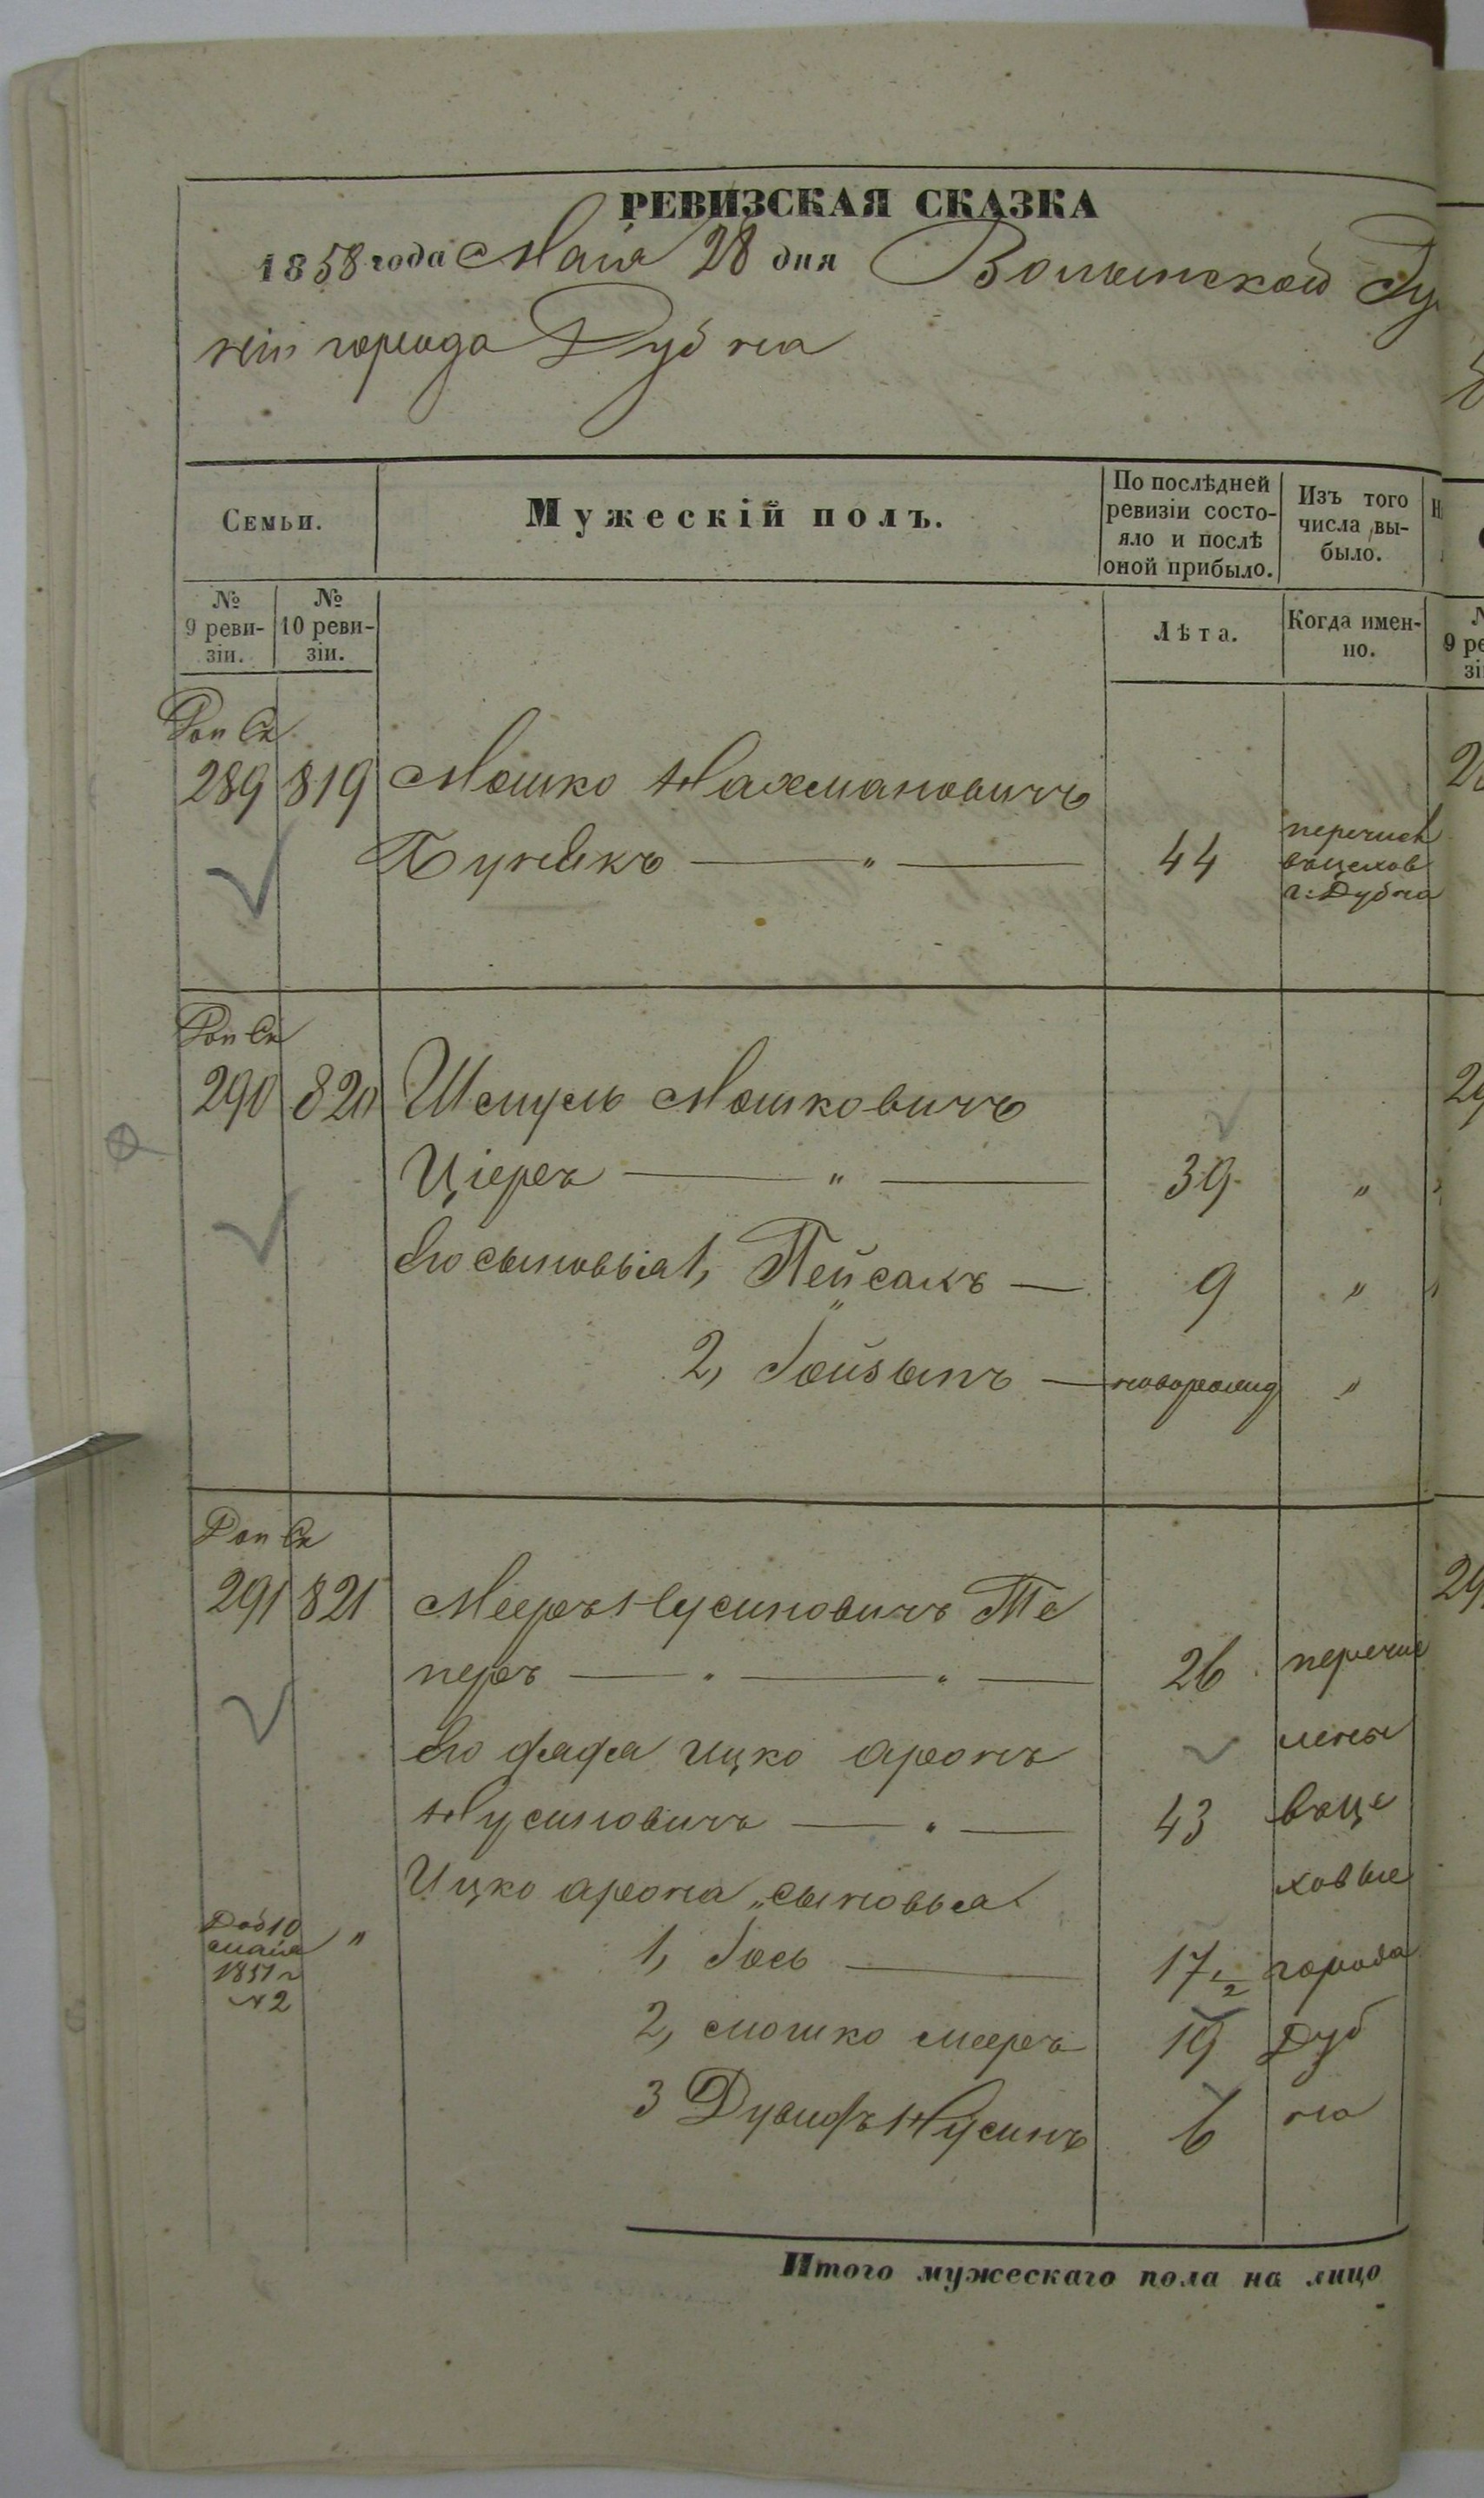 РЕВИЗСКАЯ СКАЗКА
1858 года Маія 28 дня Волынской Гу
ніи города Дубна
Семьи.
Мужескій полъ.
По послѣдней ревизіи состо-
яло и послѣ оной прибыло.
Изъ того числа вы-
было.
№ 9 реви-
зіи.
№ 10 реви-
зіи.
Лѣта.
Когда имен-
но.
Доп Ск
289 819 Мошко Нахмановичъ
44
перечисл
въцехов
г: Дубна
Доп Ск
290 820 Шмуль Мошковичъ
Ціеръ — „ — 39 „
Его сыновья 1, Пейсахъ — 9 „
2, Іойзыпъ — новорожд „
Доп Ск
291 821 Мееръ Нусиновичъ Те
перъ — „ — „ — 26 перечис
Его дядя Ицко Аронъ лены
Нусиновичъ — „ — 43 въце
Ицко Арона „ сыновья ховые
Доб 10
маія
1851 г
№ 2
„ 1, Іось — 17 1/2 города
2, Мошко Мееръ 19 Дуб
3 Дувидъ Нусинъ 6 на
Итого мужескаго пола на лицо